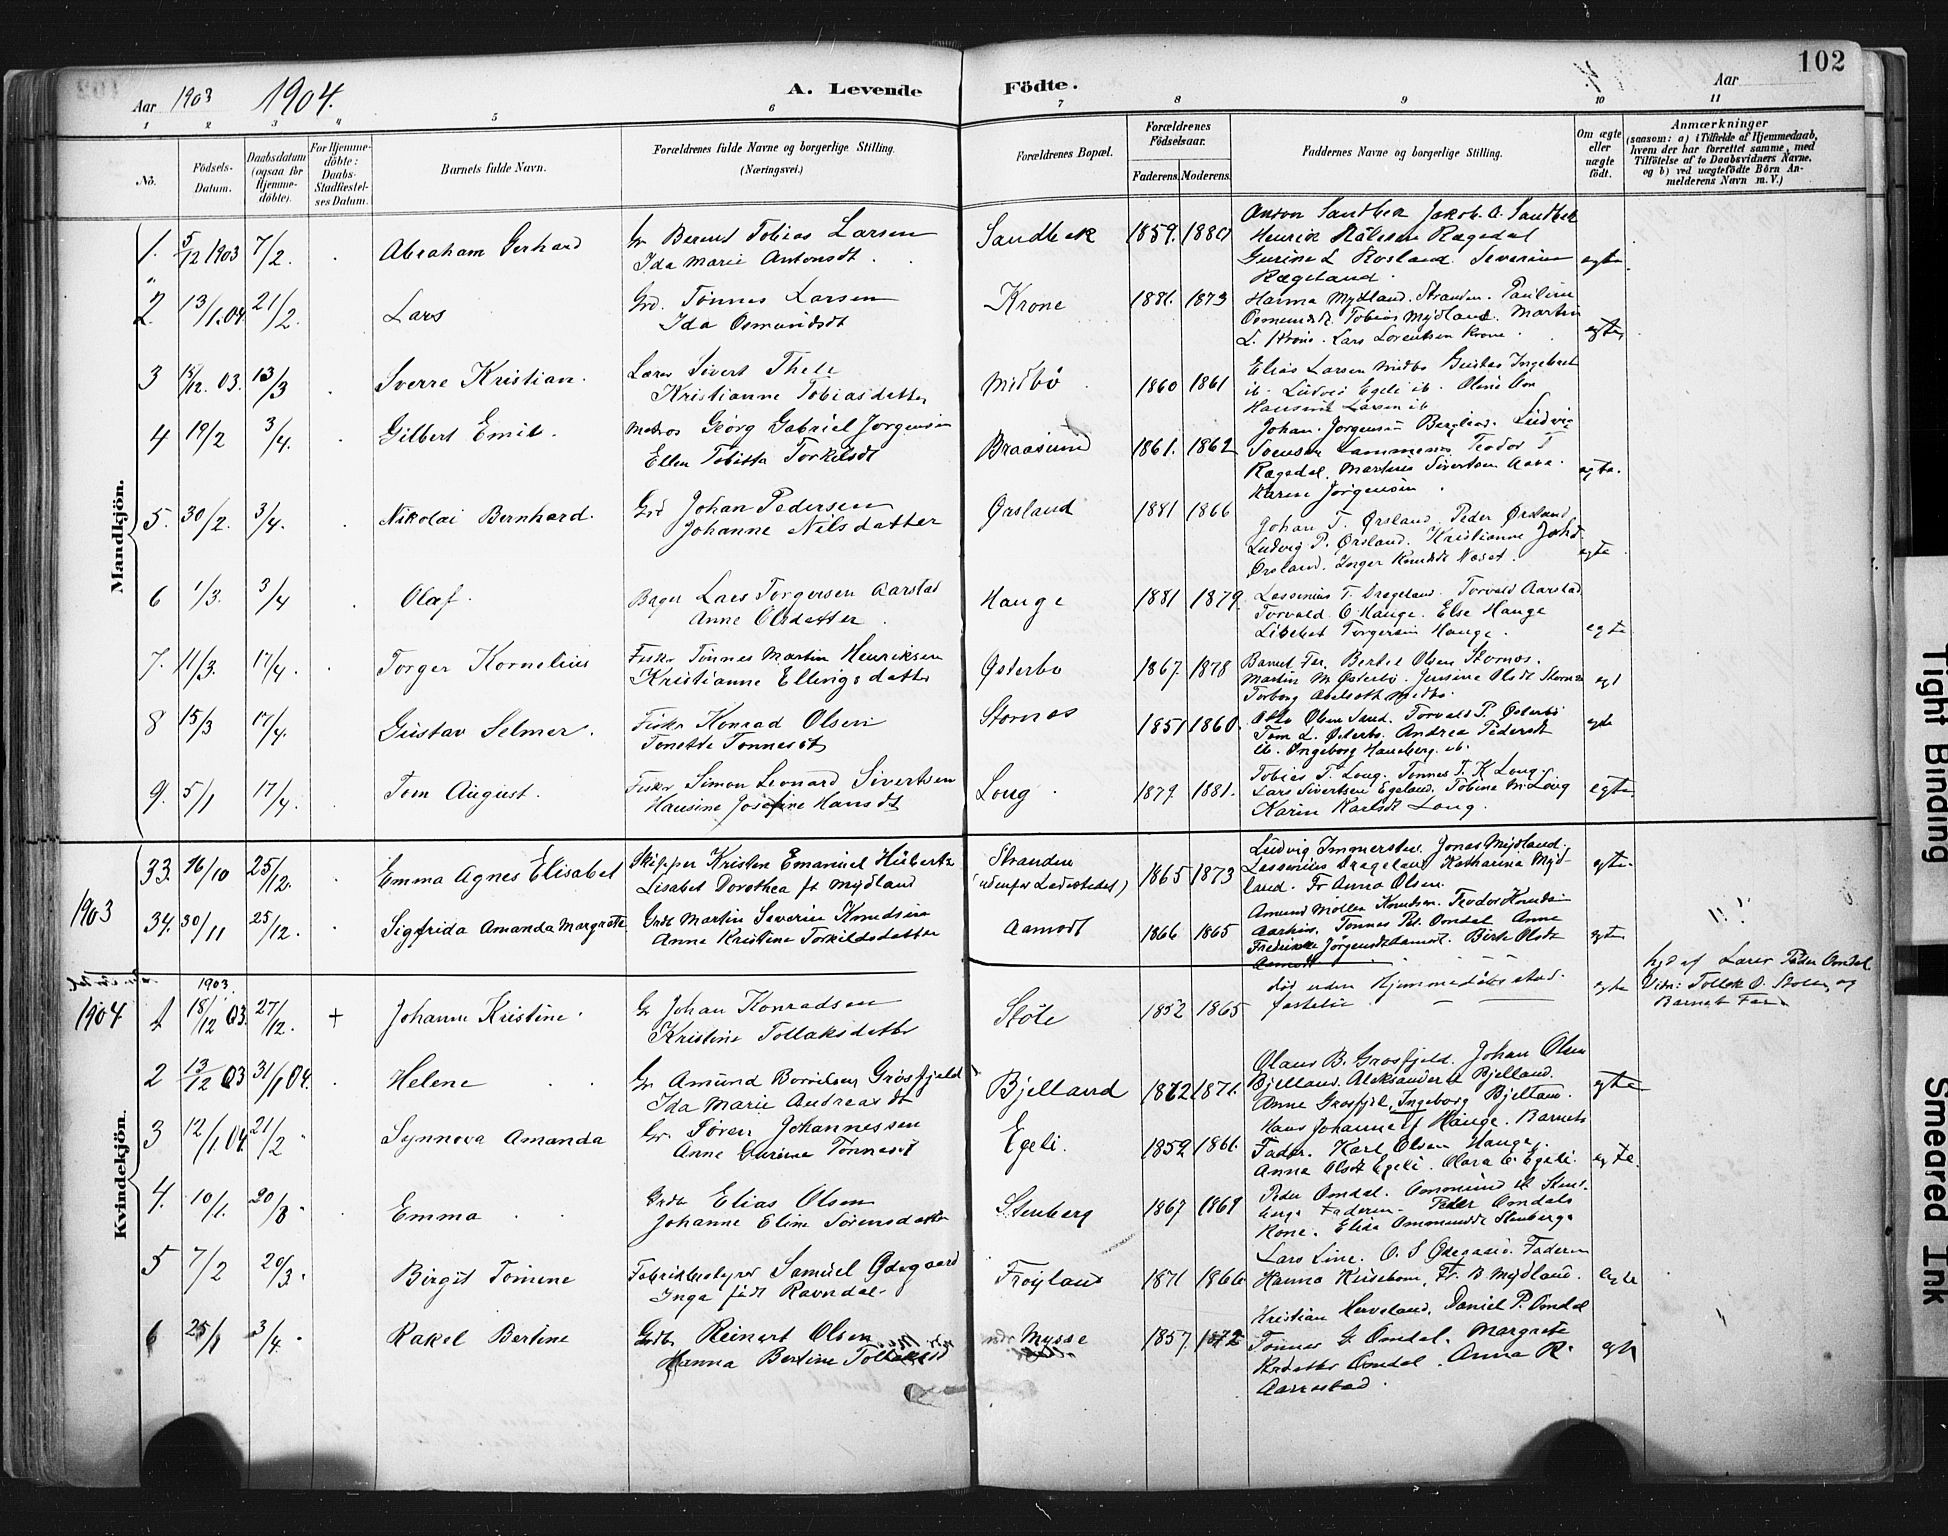 102
Aar 1903 1904.
A. Levende Födte.
Aar
1 2 3 4 5 6 7 8 9 10 11
No.
Födsels-Datum.
Daabsdatum (ogsaa for Hjemmedöbte).
For Hjemmedöbte: Daabs-Stadfæstelses Datum.
Barnets fulde Navn.
Forældrenes fulde Navne og borgerlige Stilling. (Næringsvei.)
Forældrenes Bopæl.
Forældrenes Födselsaar.
Faderens. Moderens.
Faddernes Navne og borgerlige Stilling.
Om ægte eller uægte født.
Anmærkninger
(saasom: a) i Tilfælde af Hjemmedaab, hvem der har forrettet samme, med Tilföielse af to Daabsvidners Navne, og b) ved uægtefödte Börn Anmelderens Navn m. V.)
Mandkjön.
1. 5/12 1903 7/2. Abraham Gerhard
Gr Berent Tobias Larsen
Ida Marie Antonsdt.
Sandbek 1859. 1880
Anton Sandbek Jakob. A. Sandbek
Henrik Rægedal
Gurine L Rosland. Severine
Rægeland.
egte.
2. 13/1.04. 21/2 Lars
Grd. Tönnes Larsen
Ida Osmundsdt
Krone 1881. 1873
Hanna Mydland. Stranden. Pauline
Osmundsdt. Tobias Mydland. Martin
L. Krone. Lars Lorentsen Krone.
egte
3 18/12. 03. 13/3 Sverre Kristian.
Lærer Sivert Thele
Kristianne Tobiasdatter
Midbö 1860 1861
Elias Larsen Midbö Gustav Ingebret
ib. Ludvig Egeli ib. Oline
Hansine Larsen ib
4 19/2 3/4. Gilbert Emil.
Matros Georg Gabriel Jörgensen
Ellen Tobitta Torkilsdt
Braasund 1861. 1862
Johan Jörgensen Ludvig
Svensen Lammenes Teodor T
Rægedal. Martines Sivertsen
Karen Jörgensen.
egte.
5. 30/2. 3/4. Nikolai Bernhard.
Grd Johan Pedersen
Johanne Nilsdatter
Ørsland 1881 1866
Johan T. Ørsland. Peder Ørsland
Ludvig P. Ørsland. Kristianne
Ørsland. Inger Knudsdt Neset.
egte
6 1/3. 3/4 Olaf.
Bager Lars Torgersen Aarstad
Anne Olsdatter.
Hauge 1881 1879.
Lassenius T. Drageland. Torvald Aarstad
Torvald O Hauge. Else Hauge
Lisebet Torgersen Hauge.
egte
7. 11/3. 17/4. Torger Kornelius
Fisker Tönnes Martin Henriksen
Kristianne Ellingsdatter
Østerbö 1867. 1878
Barnets Far. Bertel Olsen Stornes.
Martin M. Østerbö. Jensine Olsdt Stornes
Torborg Abelsdt Midbö.
egt
8 15/3 17/4. Gustav Selmer.
Fisker Konrad Olsen
Tonette Tonnesdt
Stornes 1851 1860.
Otto Olsen Sand. Torvald P. Østerbö
Tom L. Østerbö. Andrea Pedersdt
ib. Ingeborg Haneberg. ib.
egte
9. 5/1 17/4. Tom August.
Fisker Simon Leonard Sivertsen
Hansine Josefine Hansdt
Long. 1879. 1881.
Tobias T. Long. Tonnes T. K Long.
Lars Sivertsen Egeland. Tobine M. Long
Karin Karlsdt Long.
egte.
1903
33. 16/10 25/12. Emma Agnes Elisabet
Skipper Kristen Emanuel Hübertz
Lisabet Dorothea ft Mydland
Stranden
(udenfor Ladestedet) 1865 1873
Ludvig Immerstein. Jonas Mydland.
Lassenius Drageland Katharina Myd-
land. Fr Anna Olsen.
egte.
34. 30/11 25/12. Sigfrida Amanda Margrete.
Grdt Martin Severin Knudsen
Anna Kristine Torkildsdatter
Aamodt 1866 1865
Amund Möller Knudsen. Teodor Knudsen
Tonnes Pet. Omdal Anne
Fredrikke Jörgensdt Aamodt. Birte Olsdt
Aamodt
egte
1904
Kvindekjön.
1903.
1 18/12 03. 27/12. + Johanne Kristine.
Gr Johan Konradsen
Kristine Tollaksdatter
Stöle 1852 1865
död uden Hjemmedaabs stad-
fæstelse
egte
hjd af Lærer Peder Omdal
Vidn: Tollak O. Stölen og
Barnets Far
2 13/12 03 31/1 04. Helene
Gr Amund Borrildsen Grösfjeld
Ida Marie Andreasdt
Bjelland 1872 1871.
Olaus B. Grösfjeld. Johan Olsen
Bjelland. Aleksander A Bjelland.
Anne Grösfjel, Ingeborg Bjelland.
egte
3 12/1.04. 21/2 Synnova Amanda
Gr. Sören Johannessen
Anne Gurine Tönnesdt
Egeli. 1852 1861.
Hans Johannes Hauge. Barnets
Fader. Karl Olsen Hauge.
Anna Olsdt Egeli. Olara E. Egeli.
egte.
4. 10/1. 20/3. Emma
Grdt Elias Olsen
Johanne Eline Sörensdatter
Stenberg 1867 1861
Peder Omdal. Ommund Sten-
berg. Faderen. Peder Omdals
Kone. Elida Ommundsdt Stenberg.
5 7/2 20/3. Birgit Tomine
Fabrikbestyrer Samuel Ödegaard
Inga født Ravndal.
Fröyland 1871 1866
Lars Line. O. S Ödegaard. Faderen
Hanna Kirsebom. Fr. B Mydland.
egte
6 25/1 3/4. Rakel Bertine
Grdt Reinert Olsen
Hanna Bertine Tollaksd
Mysse 1857. 1872
Kristian Herveland. Daniel P. Omdal
Tönnes G. Omdal. Margrete
Omdal. Anna R.
Aarrestad.
egte
Tight Binding
Smeared Ink